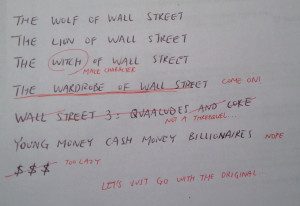 THE WOLF OF WALL STREET
THE LION OF WALL STREET
THE WITCH OF WALL STREET
MALE CHARACTER
THE WARDROBE OF WALL STREET COME ON!
WALL STREET 3: QUAALUDES AND COKE
NOT A THREEQUEL...
YOUNG MONEY CASH MONEY BILLIONAIRES NOPE
$ $ $ TOO LAZY
LET'S JUST GO WITH THE ORIGINAL